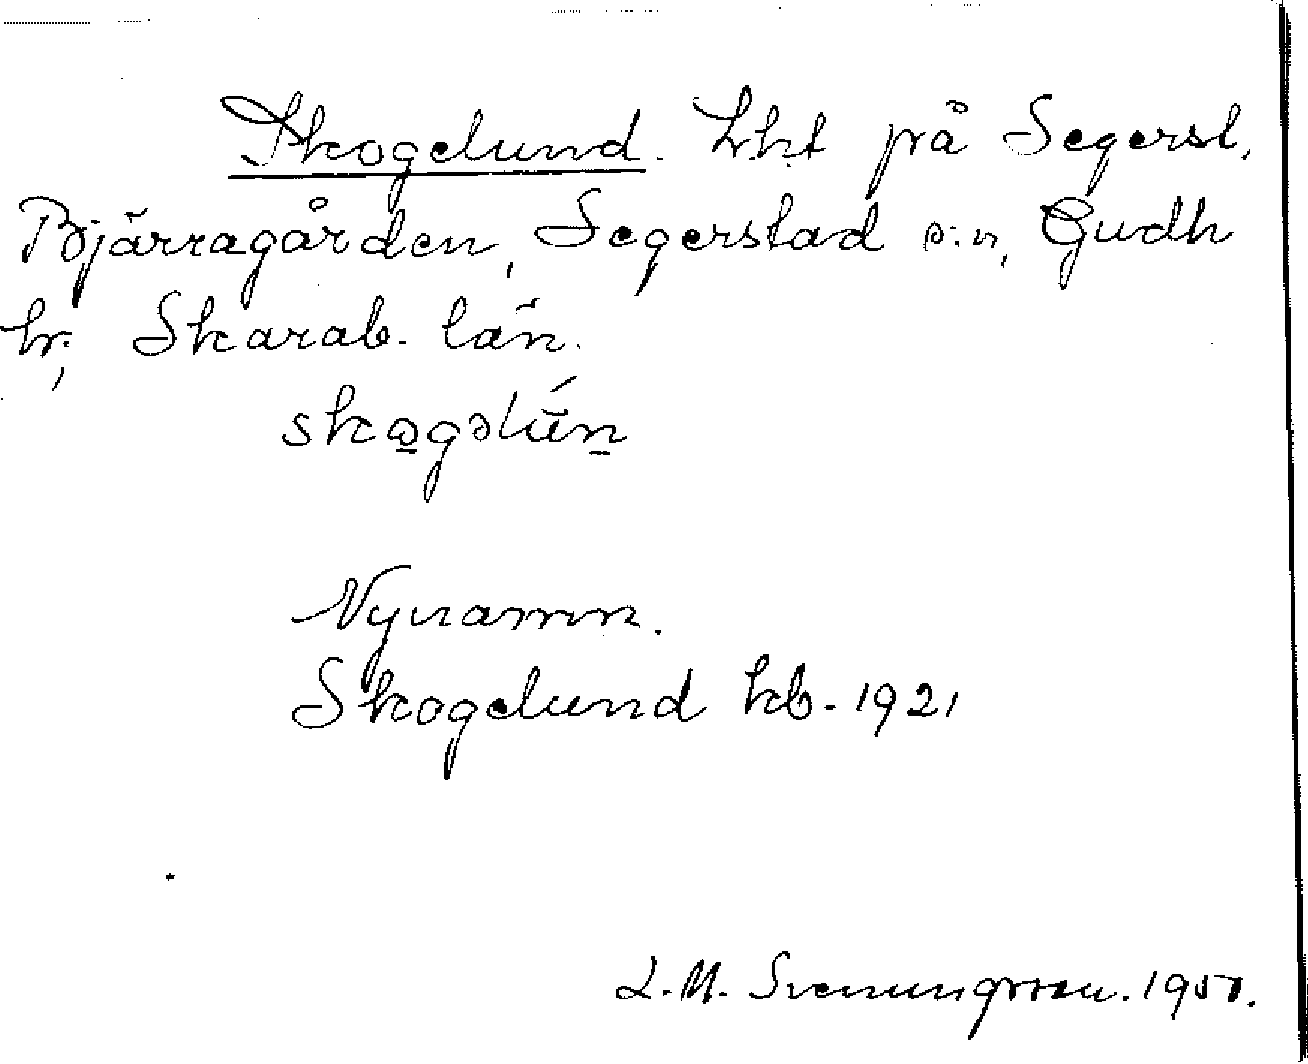 Skogelund. Lht på Segerst,
Bjärragården, Segerstad s:n, Gudh
hr, Skarab. län.
Nynamn.
Skogelund kb. 1921
L.M. Svenungsson. 1950.